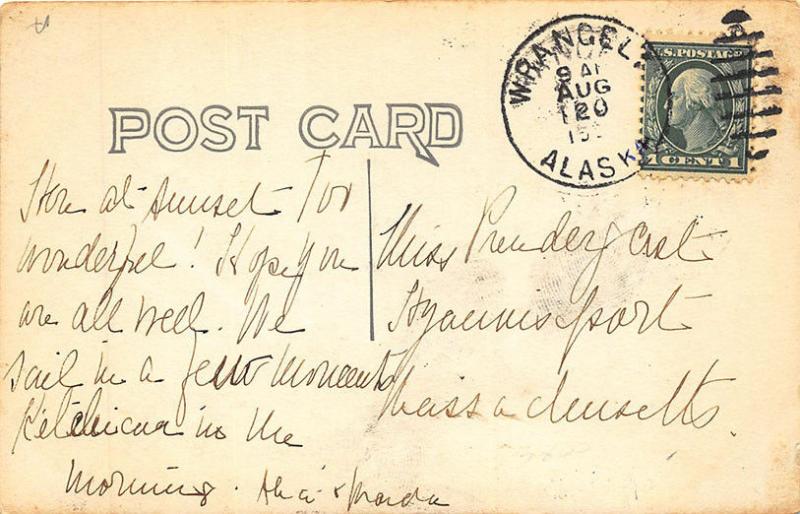 POST CARD
WRANGELL
AUG
20
ALASKA
U.S. POSTAGE
1 CENT 1
Here at sunset Too
wonderful! Hope you
are all well. We
sail in a few moments
Ketchican in the
morning.
Miss Prendergast
Hyannisport
Massachusetts.